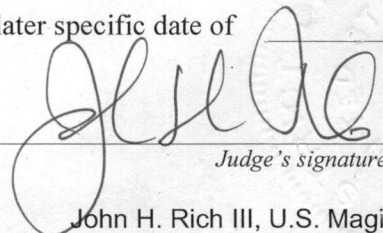 later specific date of
Judge's signature
John H. Rich III, U.S. Magi